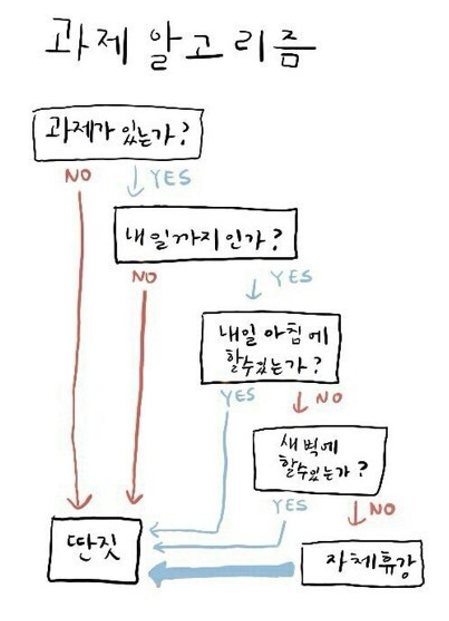 과제 알고리즘
과제가 있는가?
NO
YES
내일까지인가?
NO
YES
내일 아침에
할수있는가?
YES
NO
새벽에
할수있는가?
YES
NO
딴짓
자체휴강